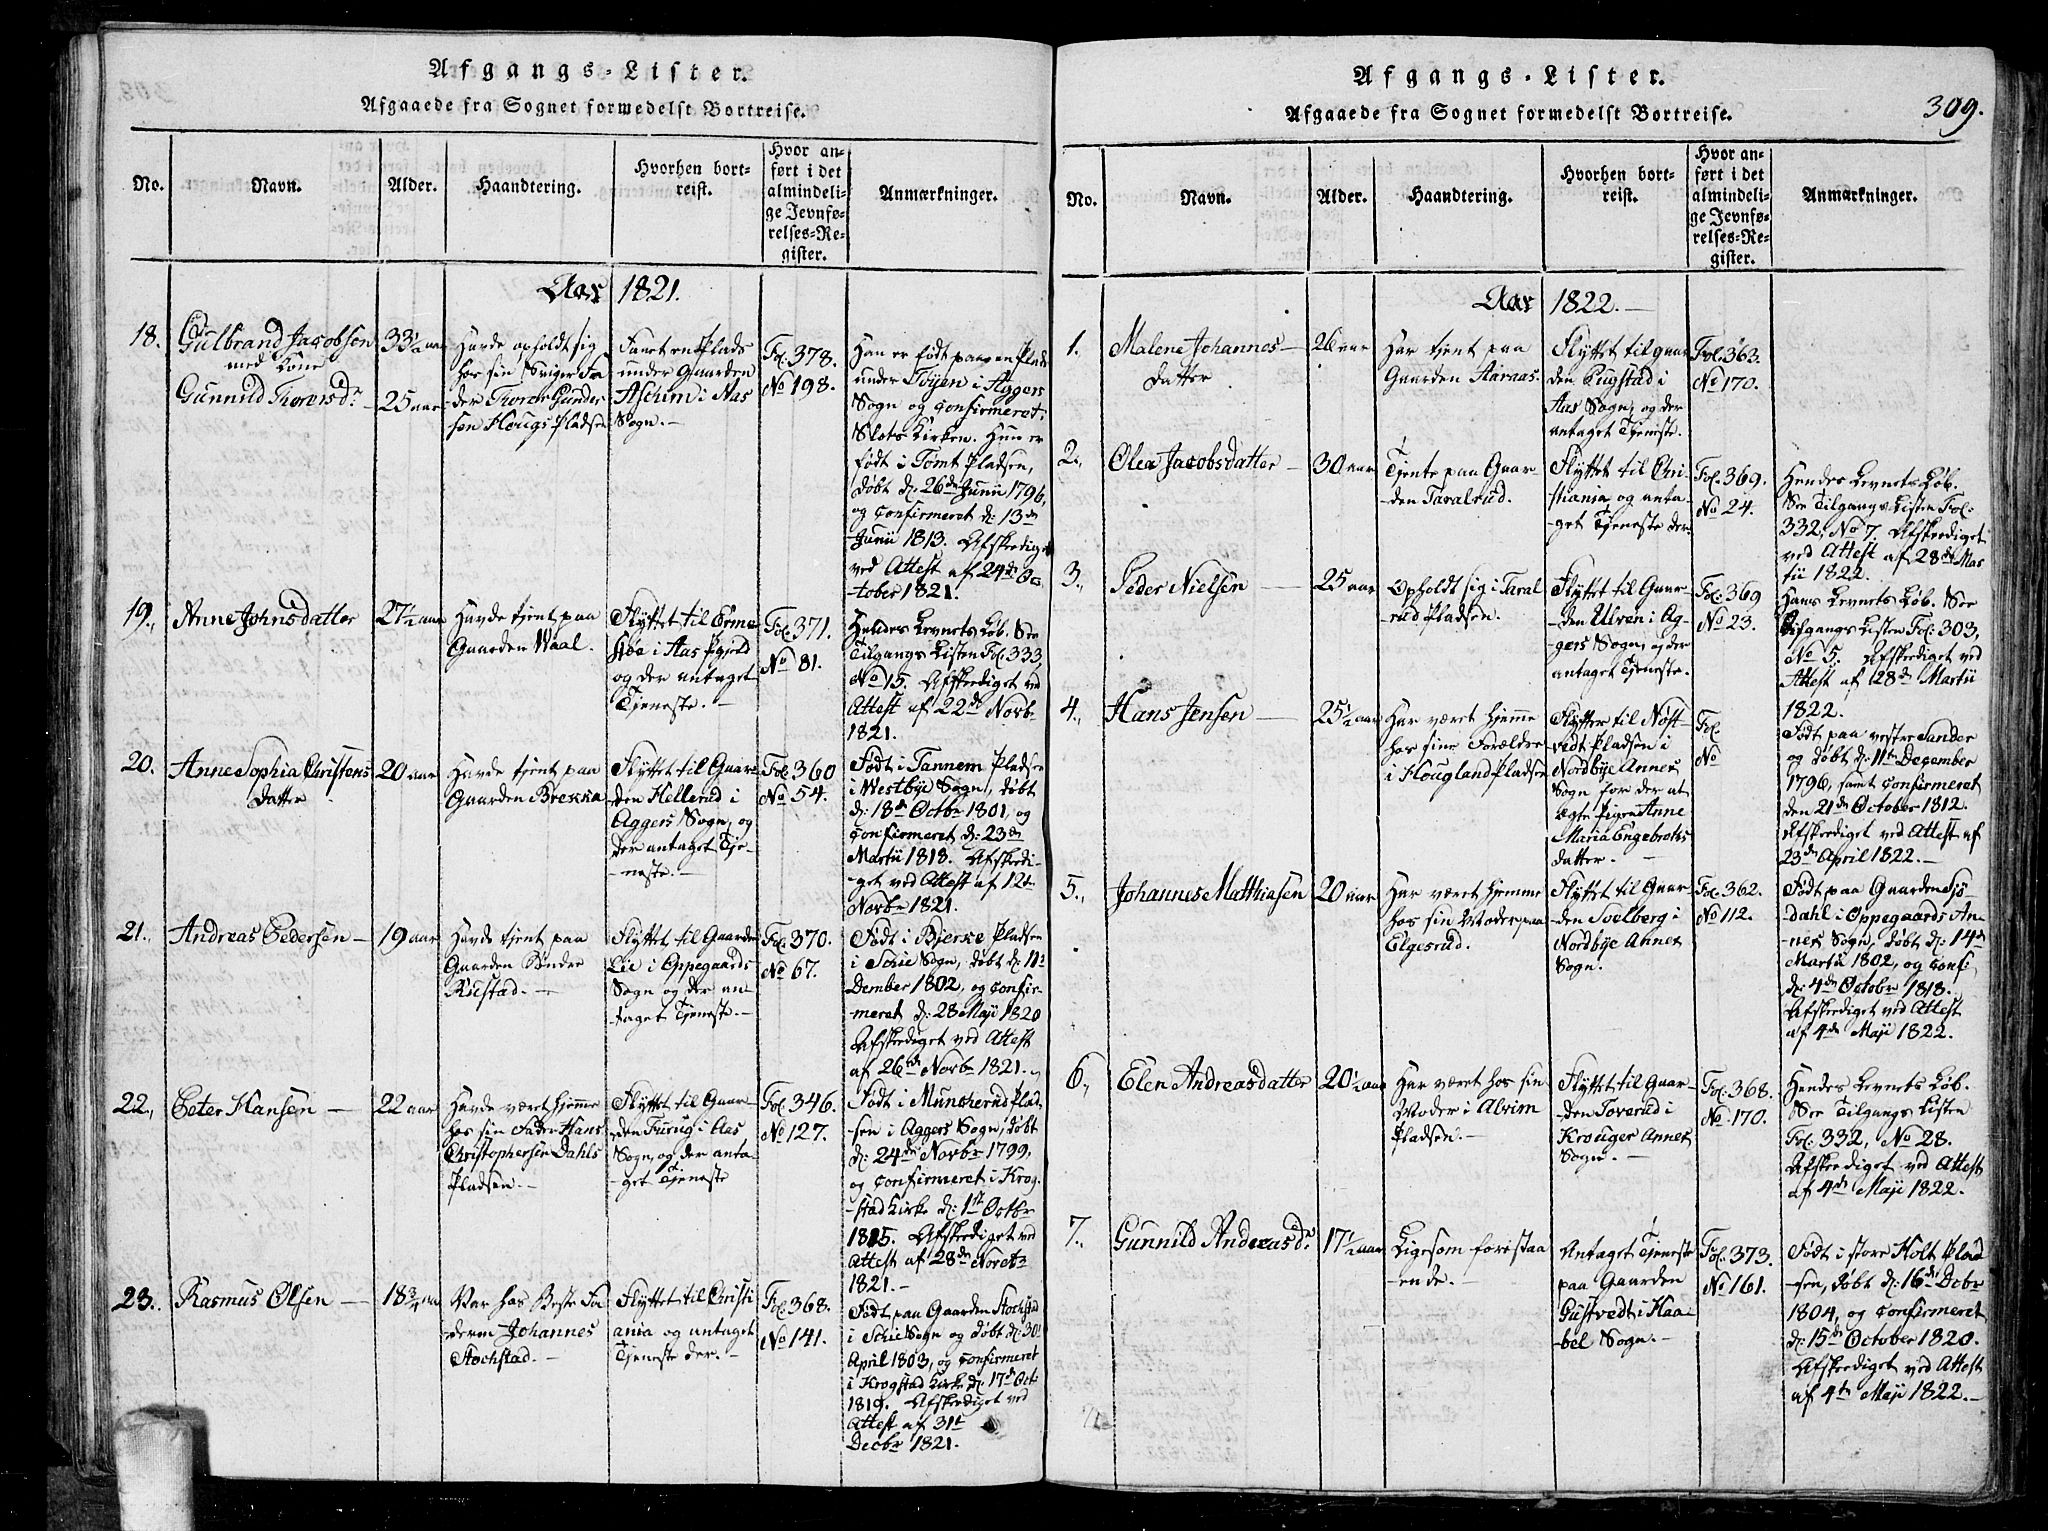 Afgangs-Lister.
Afgaaede fra Sognet formedelst Bortreise.
No.
Navn.
Alder.
Haandtering.
Hvorhen bort-
reist.
Hvor an-
ført i det
almindeli-
ge Jevnfø-
relses-Re-
gister.
Anmærkninger.
Aar 1821.
18.
Gulbrand Jacobsen
med Kone
Gunnild Thorersdr
33½ aar
25 aar
Havde opholdt sig
hos sin Sviger Fa
der Thorer Gunder
sen Hougs Pladsen
Faaet en Plads
under Gaarden
Aschim i Aas
Sogn.
Fol. 378.
No 198.
Han er født paa en Plads
under Töyen i Aggers
Sogn og confirmeret i
Slots Kirken. Hun er
født i Tomt Pladsen,
døbt d. 26de Junii 1796,
og confirmeret d. 13de
Junii 1813. Afskediget
ved Attest af 24de Oc
tober 1821.
19.
Anne Johnsdatter
27½ aar
Havde tjent paa
Gaarden Waal.
Flyttet til
i Aas Pgjeld
og der antaget
Tjeneste.
Fol. 371.
No 81.
Hendes Levnets Løb. See
Tilgangs Listen Fol. 333,
No 15. Afskediget ved
Attest af 22de Novbr
1821.
20.
Anne Sophia Christens
datter
20 aar
Havde tjent paa
Gaarden Brekka
Flyttet til Gaar
den Hellerud i
Aggers Sogn, og
der antaget Tje-
neste.
Fol. 360
No 54.
Født i Tannem Pladsen
i Westbye Sogn, døbt
d. 18de Octbr 1801, og
confirmeret d. 23de
Martii 1818. Afskedi-
get ved Attest af 12te
Novbr 1821.
21.
Andreas Pedersen
19 aar
Havde tjent paa
Gaarden Søndre
Rustad.
Flyttet til Gaarden
Lie i Oppegaards
Sogn og der an-
taget Tjeneste.
Fol. 370.
No 67.
Født i Bjerke Pladsen
i Schie Sogn, døbt d. 11te
December 1802, og confir-
meret d. 28 Maji 1820
Afskediget ved Attest
af 26de Novbr 1821.
22.
Peter Hansen
22 aar
Havde været hjemme
hos sin Fader Hans
Christophersen Dahls
Pladsen.
Flyttet til Gaar-
den Furug i Aas
Sogn, og der anta-
get Tjeneste
Fol. 346.
No 127.
Født i Munkerud Plad-
sen i Aggers Sogn, døbt
d. 24de Novbr 1799,
og confirmeret i Krog-
stad Kirke d. 1st Octbr
1815. Afskediget ved
Attest af 28de
1821.
23.
Rasmus Olsen
18¾ aar
Var hos Beste Fa
deren Johannes
Stochstad.
Flyttet til Christi
ania og antaget
Tjeneste der.
Fol. 368.
No 141.
Født paa Gaarden Stochstad
i Schie Sogn og døbt d. 30te
April 1803, og confirmeret
i Krogstad Kirke d. 17de Octb
1819. Afskediget ved
Attest af 31te
Decbr 1821.
Afgangs-Lister.
309.
Afgaaede fra Sognet formedelst Bortreise.
No.
Navn.
Alder.
Haandtering.
Hvorhen bort-
reist.
Hvor an-
ført i det
almindeli-
ge Jevnfø-
relses-Re-
gister.
Anmærkninger.
Aar 1822.
1.
Malene Johannes-
datter
26 aar
Har tjent paa
Gaarden Aaraas.
Flyttet til Gaar
den Rugstad i
Aas Sogn, og der
antaget Tjeneste.
Fol. 363.
No 170.
2.
Olea Jacobsdatter
30 aar
Tjente paa Gaar-
den Taralrud.
Flyttet til Chri-
stiania og anta-
get Tjeneste der.
Fol. 369.
No 24.
Hendes Levnets Løb.
See Tilgangs Listen Fol.
332, No 7. Afskediget
ved Attest af 28de Mar
tii 1822.
3.
Peder Nielsen
25 aar
Opholdt sig i Taral
rud Pladsen.
Flyttet til Gaar-
den Ulven i Ag-
gers Sogn, og der
antaget Tjeneste.
Fol. 369
No 23.
Hans Levnets Løb. See
Afgangs Listen Fol. 303,
No 5. Afskediget ved
Attest af 28de Martii
1822.
4.
Hans Jensen
25½ aar
Har været hjemme
hos sine Forældre
i Hougland Pladsen
Flytter til Nøst-
vedt Pladsen i
Nordbye Annex
Sogn for der at
ægte Pigen Anne
Maria Engebrets
datter.
Fol.
No
Født paa vestre Sander
og døbt d. 11te December
1796, samt confirmeret
den 21de October 1812.
Afskediget ved Attest af
23de April 1822.
5.
Johannes Matthiasen
20 aar
Har været hjemme
hos sin Moder paa
Elgesrud.
Flyttet til Gaar-
den Svelberg i
Nordbye Annex
Sogn.
Fol. 362.
No 112.
Født paa Gaarden Sjö
dahl i Oppegaards An-
nex Sogn, døbt d. 14de
Martii 1802, og conf.
d. 4de Octobr 1818.
Afskediget ved Attest
af 4de Maji 1822.
6.
Elen Andreasdatter
20½ aar
Har været hos sin
Moder i Alvim
Pladsen.
Flyttet til Gaar-
den Toverud i
Krouger Annex
Sogn.
Fol. 368.
No 170.
Hendes Levnets Løb.
See Tilgangs Listen
Fol. 332, No 28.
Afskediget ved Attest
af 4de Maji 1822.
7.
Gunnild Andreasdr
17½ aar
Ligesom forestaa
ende.
Antaget Tjeneste
paa Gaarden
Gustvedt i Haa-
bel Sogn.
Fol. 373.
No 161.
Født i store Holt Plad
sen, døbt d. 16de Decbr
1804, og confirmeret
d. 15de October 1820.
Afskediget ved Attest
af 4de Maji 1822.